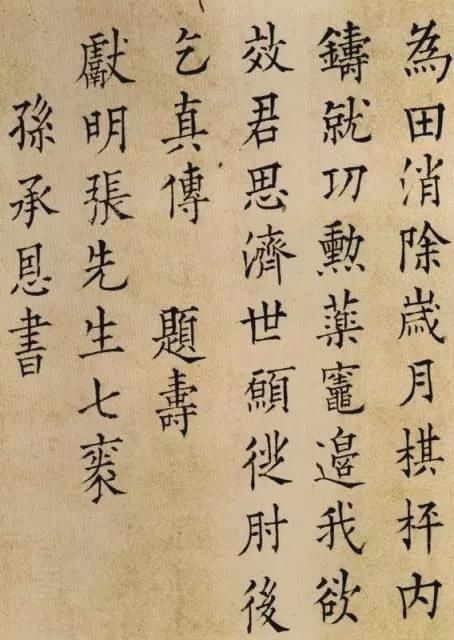 為田消除歲月棋枰内
鑄就功勲藥竈邉我欲
效君思濟世願從肘後
乞真傳 題壽
獻明張先生七袠
孫承恩書